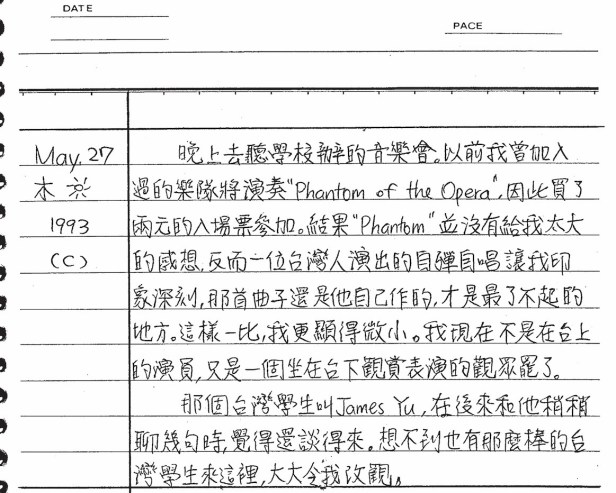 DATE
PACE
May. 27
木
1993
(C)
晚上去聽學校辦的音樂會。以前我曾加入
過的樂隊將演奏"Phantom of the Opera",因此買了
兩元的入場票參加。結果"Phantom"並沒有給我太大
的感想,反而一位台灣人演出的自彈自唱讓我印
象深刻,那首曲子還是他自己作的,才是最了不起的
地方。這樣一比,我更顯得微小。我現在不是在台上
的演員,又是一個坐在台下觀賞表演的觀眾罷了。
那個台灣學生叫James Yu,在後來和他稍稍
聊幾句時,覺得還談得來。想不到也有那麼棒的台
灣學生來這裡,大大令我改觀。